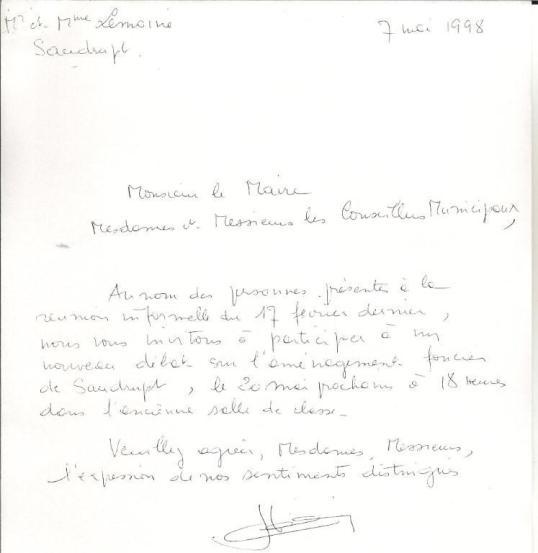 Mr et Mme Lemoine
Saudrupt.
7 mai 1998
Monsieur le Maire
Mesdames et Messieurs les Conseillers Municipaux,
Au nom des personnes présentes à la
réunion informelle du 17 février dernier,
nous vous invitons à participer à un
nouveau débat sur l'aménagement foncier
de Saudrupt, le 20 mai prochain à 18 heures
dans l'ancienne salle de classe.
Veuillez agréer, Mesdames, Messieurs,
l'expression de nos sentiments distingués